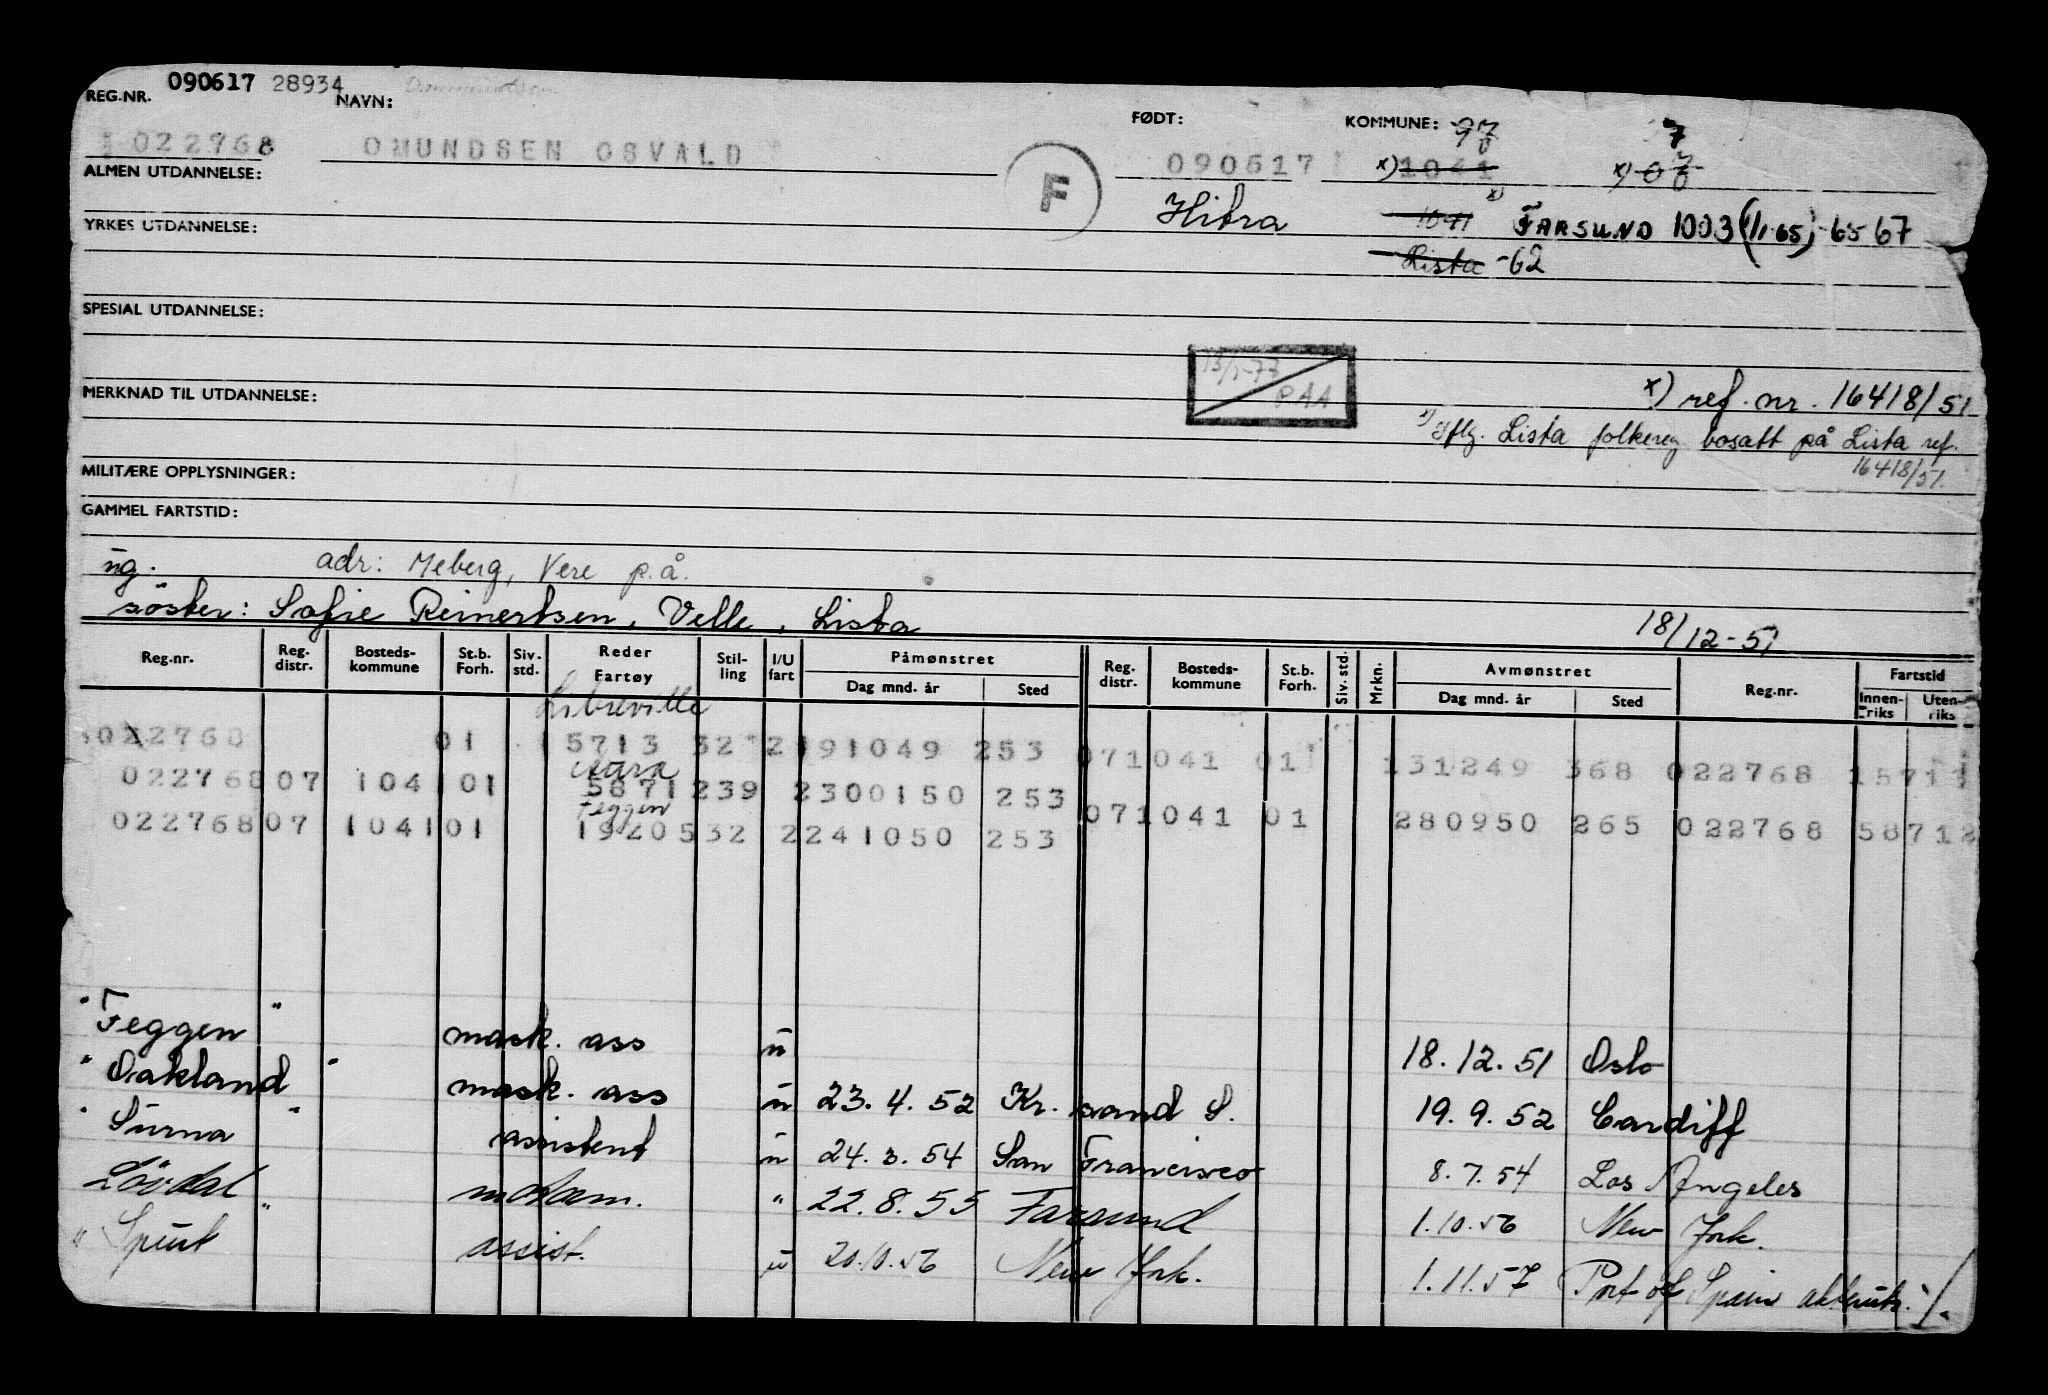 090617 28934
REG.NR. NAVN: FØDT: KOMMUNE: 97 7
022768 OMUNDSEN OSVALD 090617 x) 1041 x) 07
ALMEN UTDANNELSE: F
Hitra 1041 x) FARSUND 1003 (1/1-65) - 65 67
YRKES UTDANNELSE:
Lista -62
SPESIAL UTDANNELSE:
13/1-77 PAA
MERKNAD TIL UTDANNELSE: x) ref. nr. 16418/51
x) Iflg. Lista folkereg. bosatt på Lista ref.
16418/51.
MILITÆRE OPPLYSNINGER:
GAMMEL FARTSTID:
ug. adr: Meberg, Vere p.å.
söster: Sofie Reinertsen, Velle, Lista 18/12-51
Reg.nr. Reg. distr. Bosteds-kommune St.b. Forh. Siv. std. Reder Fartøy Stil-ling I/U fart Påmønstret Dag mnd. år Sted Reg. distr. Bosteds-kommune St.b. Forh. Siv. std. Mrkn. Avmønstret Dag mnd. år Sted Reg.nr. Fartstid Innen-riks Uten-riks
Libreville
022768 01 5713 32 2 191049 253 071041 01 131249 368 022768 15711
022768 07 1041 01 5871 239 2 300150 253 071041 01 280950 265 022768 58712
Feggen
022768 07 1041 01 19205 32 2 241050 253
"Feggen" mask. ass u 18.12.51 Oslo
"Oakland" mask. ass u 23.4.52 Kr. sand S. 19.9.52 Cardiff
"Surna" assistent u 24.3.54 San Francisco 8.7.54 Los Angeles
Lövdal" motorm. " 22.8.55 Farsund 1.10.56 New York.
"Spurt assist. u 20.10.56 New York. 1.11.57 Port of Spain